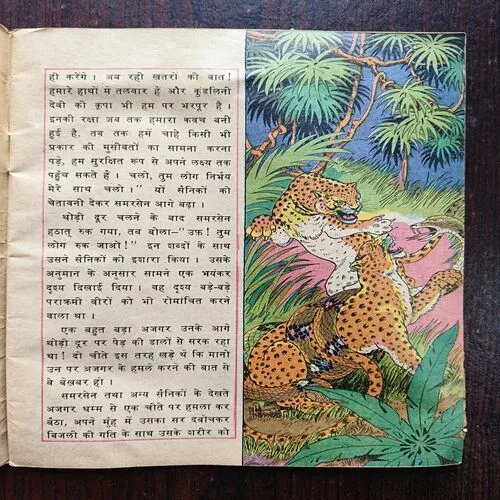 ही करेंगे । अब रही खतरों की बात!
हमारे हाथों में तलवार हैं और कुंडलिनी
देवी की कृपा भी हम पर भरपूर है ।
इनकी रक्षा जब तक हमारा कवच बनी
हुई है, तब तक हमें चाहे किसी भी
प्रकार की मुसीबतों का सामना करना
पड़े, हम सुरक्षित रूप से अपने लक्ष्य तक
पहुँच सकते हैं । चलो, तुम लोग निर्भय
मेरे साथ चलो ।" यों सैनिकों को
चेतावनी देकर समरसेन आगे बढ़ा ।
थोड़ी दूर चलने के बाद समरसेन
हठात् रुक गया, तब बोला–"उफ़! तुम
लोग रुक जाओ!" इन शब्दों के साथ
उसने सैनिकों को इशारा किया । उसके
अनुमान के अनुसार सामने एक भयंकर
दृश्य दिखाई दिया । वह दृश्य बड़े-बड़े
पराक्रमी वीरों को भी रोमांचित करने
वाला था ।
एक बहुत बड़ा अजगर उनके आगे
थोड़ी दूर पर पेड़ की डालों से सरक रहा
था! दो चीते इस तरह खड़े थे कि मानो
उन पर अजगर के हमले करने की बात से
वे बेखबर हों ।
समरसेन तथा अन्य सैनिकों के देखते
अजगर धम्म से एक चीते पर हमला कर
बैठा, अपने मुँह में उसका सर दबोचकर
बिजली की गति के साथ उसके शरीर को